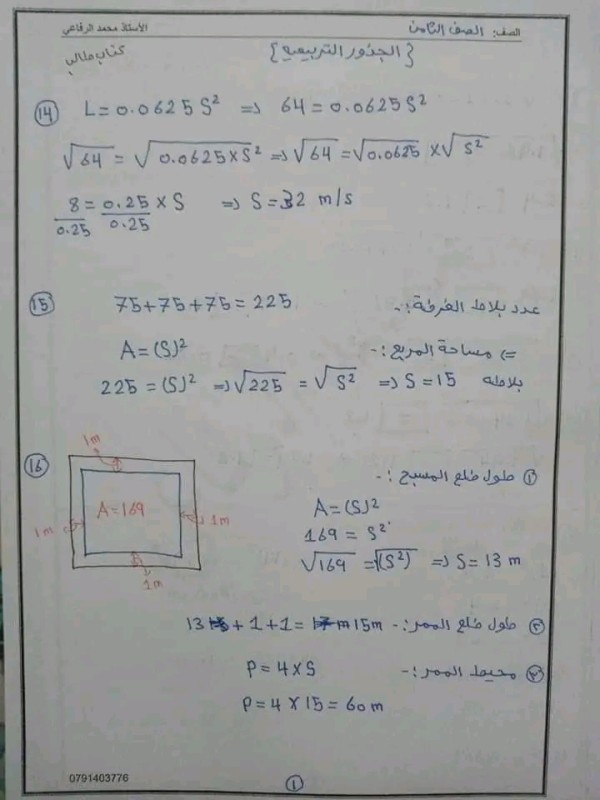 الصف: الصف الثامن الأستاذ محمد الرفاعي
{الجذور التربيعيه} كتاب طالب
14 L=0.0625 S² => 64=0.0625S²
√64 = √0.0625×S² => √64 = √0.0625 × √S²
8/0.25 = 0.25 × S/0.25 => S=32 m/s
15 عدد بلاط الغرفة:- 75+75+75=225
=> مساحة المربع:-
A=(S)²
225=(S)² => √225 = √S² => S=15 بلاطه
16 ① طول ضلع المسبح:-
1m
A=169
1m
1m
1m
A=(S)²
169 = S²
√169 = √(S²) => S=13 m
② طول ضلع الممر:- 13+1+1=15m
③ محيط الممر:-
P=4×S
P=4×15=60m
0791403776
①